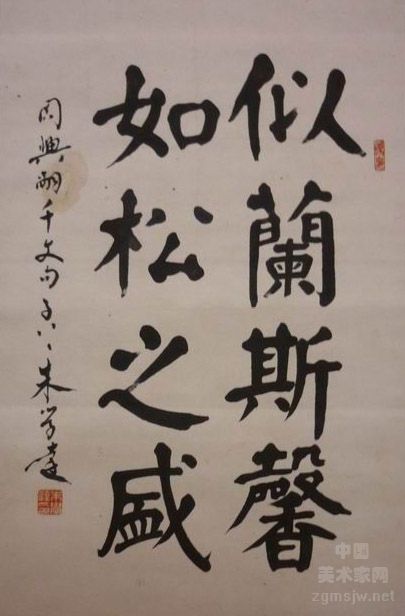 似蘭斯馨
如松之盛
周興嗣千文句 朱学達
中国
美术家网
zgmsjw.net